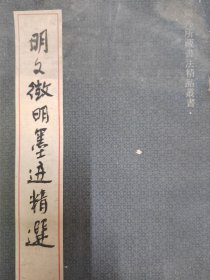 所藏書法精品叢書·
明文徵明墨迹精選